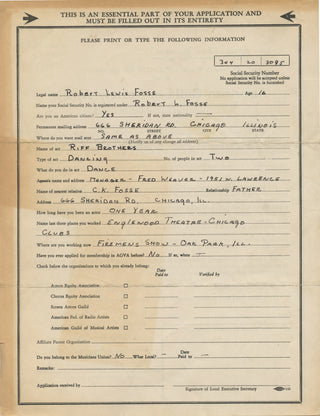 THIS IS AN ESSENTIAL PART OF YOUR APPLICATION AND
MUST BE FILLED OUT IN ITS ENTIRETY
PLEASE PRINT OR TYPE THE FOLLOWING INFORMATION
344 20 5095
Social Security Number
No application will be accepted unless
Social Security No. is furnished
Legal name Robert Lewis Fosse Age 16
Name your Social Security No. is registered under Robert L. Fosse
Are you an American citizen? Yes If not, state nationality —
Permanent mailing address 666 Sheridan Rd. Chicago Illinois
NO. STREET CITY STATE
Where do you want mail sent Same as above
(Notify us of any change of address)
Name of act Riff Brothers
Type of act Dancing No. of people in act Two
What do you do in act Dance
Agents name and address Manager - Fred Weaver - 1951 W. Lawrence
Name of nearest relation C.K. Fosse Relationship Father
Address 666 Sheridan Rd, Chicago, Ill.
How long have you been an actor One Year
Name last three places you worked Englewood Theatre - Chicago
Clubs
Where are you working now Firemens Show - Oak Park, Ill.
Have you ever applied for membership in AGVA before No If so, when —
Check below the organizations to which you already belong:
Date Paid to Verified by
Actors Equity Association
Chorus Equity Association
Screen Actors Guild
American Fed. of Radio Artists
American Guild of Musical Artists
Affiliate Parent Organization
Do you belong to the Musicians Union? No What Local? - Date Paid to -
Remarks:
Application received by
Signature of Local Executive Secretary